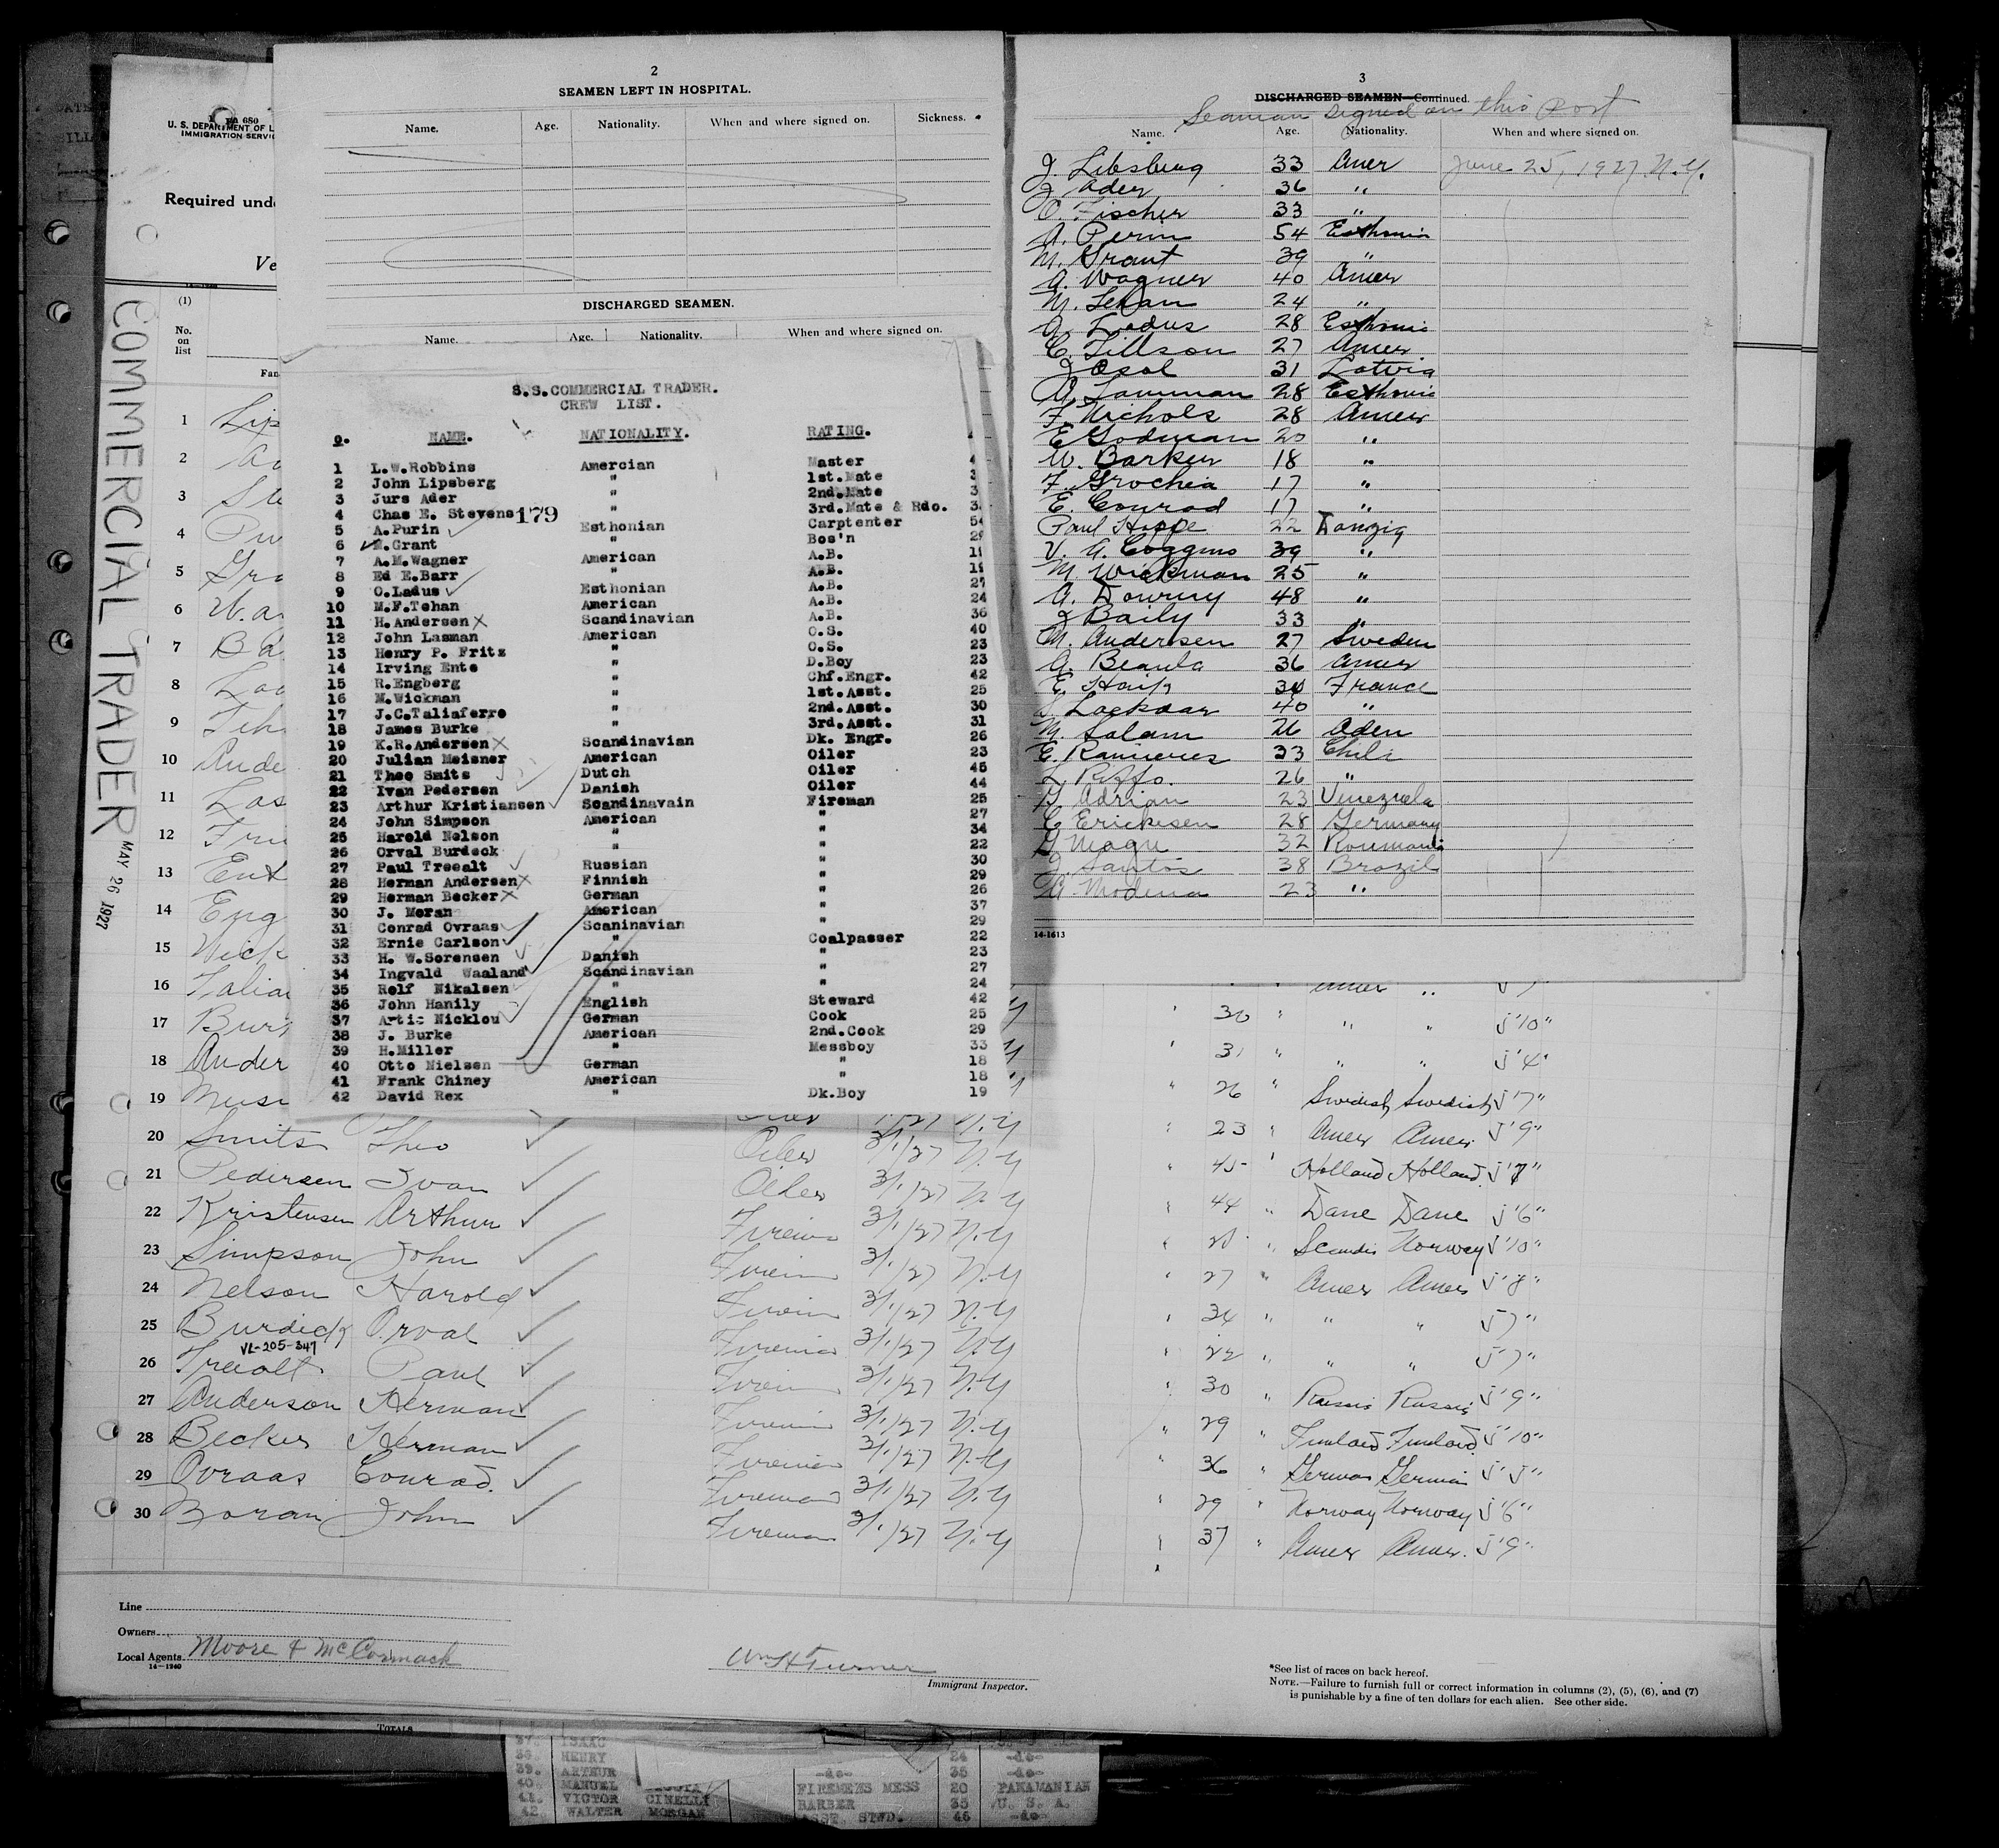 680
U. S. DEPARTMENT OF L
IMMIGRATION SERVIC
Required unde
Ve
COMMERCIAL TRADER
MAY 26 1927
(1)
No. on list
Fam
2
SEAMEN LEFT IN HOSPITAL.
Name. Age. Nationality. When and where signed on. Sickness.
DISCHARGED SEAMEN.
Name. Age. Nationality. When and where signed on.
S.S.COMMERCIAL TRADER.
CREW LIST.
o. NAME. NATIONALITY. RATING.
1 L.W.Robbins Amercian Master 4
2 John Lipsberg " 1st.Mate 3
3 Jurs Ader " 2nd.Mate 3
4 Chas E. Stevens 179 " 3rd.Mate & Rdo. 3
5 A.Purin Esthonian Carptenter 54
6 M.Grant " Bos'n 29
7 A.M.Wagner American A.B. 19
8 Ed E.Barr " A.B. 19
9 O.Ladus Esthonian A.B. 27
10 M.F.Tehan American A.B. 24
11 H.Andersen Scandinavian A.B. 36
12 John Lasman American O.S. 40
13 Henry P. Fritz " O.S. 23
14 Irving Ente " D.Boy 23
15 R.Engberg " Chf.Engr. 42
16 M.Wickman " 1st.Asst. 25
17 J.C.Taliaferro " 2nd.Asst. 30
18 James Burke " 3rd.Asst. 31
19 K.R.Andersen Scandinavian Dk. Engr. 26
20 Julian Meisner American Oiler 23
21 Theo Smits Dutch Oiler 45
22 Ivan Pedersen Danish Oiler 44
23 Arthur Kristiansen Scandinavain Fireman 25
24 John Simpson American " 27
25 Harold Nelson " " 34
26 Orval Burdeck " " 22
27 Paul Treealt Russian " 30
28 Herman Andersen Finnish " 29
29 Herman Becker German " 26
30 J. Moran American " 37
31 Conrad Ovraas Scaninavian " 29
32 Ernie Carlson " Coalpasser 22
33 H. W.Sorensen Danish " 23
34 Ingvald Waaland Scandinavian " 27
35 Rolf Nikalsen " " 24
36 John Hanily English Steward 42
37 Artic Nicklou German Cook 25
38 J. Burke American 2nd.Cook 29
39 H.Miller " Messboy 33
40 Otto Nielsen German " 18
41 Frank Chiney American " 18
42 David Rex " Dk.Boy 19
3
DISCHARGED SEAMEN—Continued.
Seaman signed on this Port
Name. Age. Nationality. When and where signed on.
J. Libsburg 33 Amer June 25, 1927 N.Y.
J. Ader 36 "
O. Fischer 33 "
A. Perin 54 Esthonia
M. Grant 39 "
A. Wagner 40 Amer
M. Lehan 24 "
A. Ladus 28 Esthonia
C. Tillson 27 Amer
J Osol 31 Latvia
A. Lamman 28 Esthonia
F. Nichols 28 Amer
E Godman 20 "
W. Barker 18 "
F. Grochia 17 "
E. Conrad 17 "
Paul Hoppe 22 Danzig
V. A. Coggins 39 "
M. Wickman 25 "
A. Dowruy 48 "
J Baily 33 "
M. Andersen 27 Sweden
A. Beaula 36 Amer
E. Haik 30 France
Lackdar 40 "
M. Salam 26 Aden
E. Ramires 33 Chili
L. Riffo. 26 "
Adrian 23 Venezuela
C. Ericksen 28 Germany
G Magu 32 Roumania
J. Santos 38 Brazil
Modena 23 "
14-1613
1 Lip
2 Ad
3 Ste
4 Pu
5 Gra
6 Wa
7 Ba
8 Lad
9 Teh
10 Ande
11 Las
12 Fri
13 Ent
14 Eng
15 Wick
16 Talia
17 Bur 30 " " " 5'10"
18 Ander 31 " " " 5'4"
19 Meis Oiler 3/1/27 N.Y " 26 " Swedish Swedish 5'7"
20 Smits Theo Oiler 3/1/27 N.Y " 23 " Amer Amer. 5'9"
21 Pedersen Ivan Oiler 3/1/27 N.Y " 45 " Holland Holland 5'7"
22 Kristensen Arthur Firem 3/1/27 N.Y " 44 " Dane Dane 5'6"
23 Simpson John Firem 3/1/27 N.Y " 25 " Scandi Norway 5'10"
24 Nelson Harold Firem 3/1/27 N.Y " 27 " Amer Amer 5'8"
25 Burdick Orval Fireman 3/1/27 N.Y " 34 " " " 5'7"
VL-205-347
26 Treealt Paul Firem 3/1/27 N.Y " 22 " " " 5'7"
27 Anderson Herman Firem 3/1/27 N.Y " 30 " Russia Russia 5'9"
28 Becker Herman Fireman 3/1/27 N.Y " 29 " Finland Finland 5'10"
29 Ovraas Conrad. Fireman 3/1/27 N.Y " 36 " German German 5'5"
30 Moran John Fireman 3/1/27 N.Y " 29 " Norway Norway 5'6"
" 37 " Amer Amer. 5'9"
Line
Owners
Local Agents Moore & McCormack
14—1940
Wm H Turner
Immigrant Inspector.
*See list of races on back hereof.
NOTE.—Failure to furnish full or correct information in columns (2), (5), (6), and (7)
is punishable by a fine of ten dollars for each alien. See other side.
TOTALS
37. ISAAC
38. HENRY 24 -do-
39. ARTHUR -do- 35 -do-
40. MANUEL FIREMENS MESS 20 PANAMANIAN
41. VICTOR CINELLI BARBER 35 U. S. A.
42. WALTER MORGAN ASST. STWD. 46 -do-